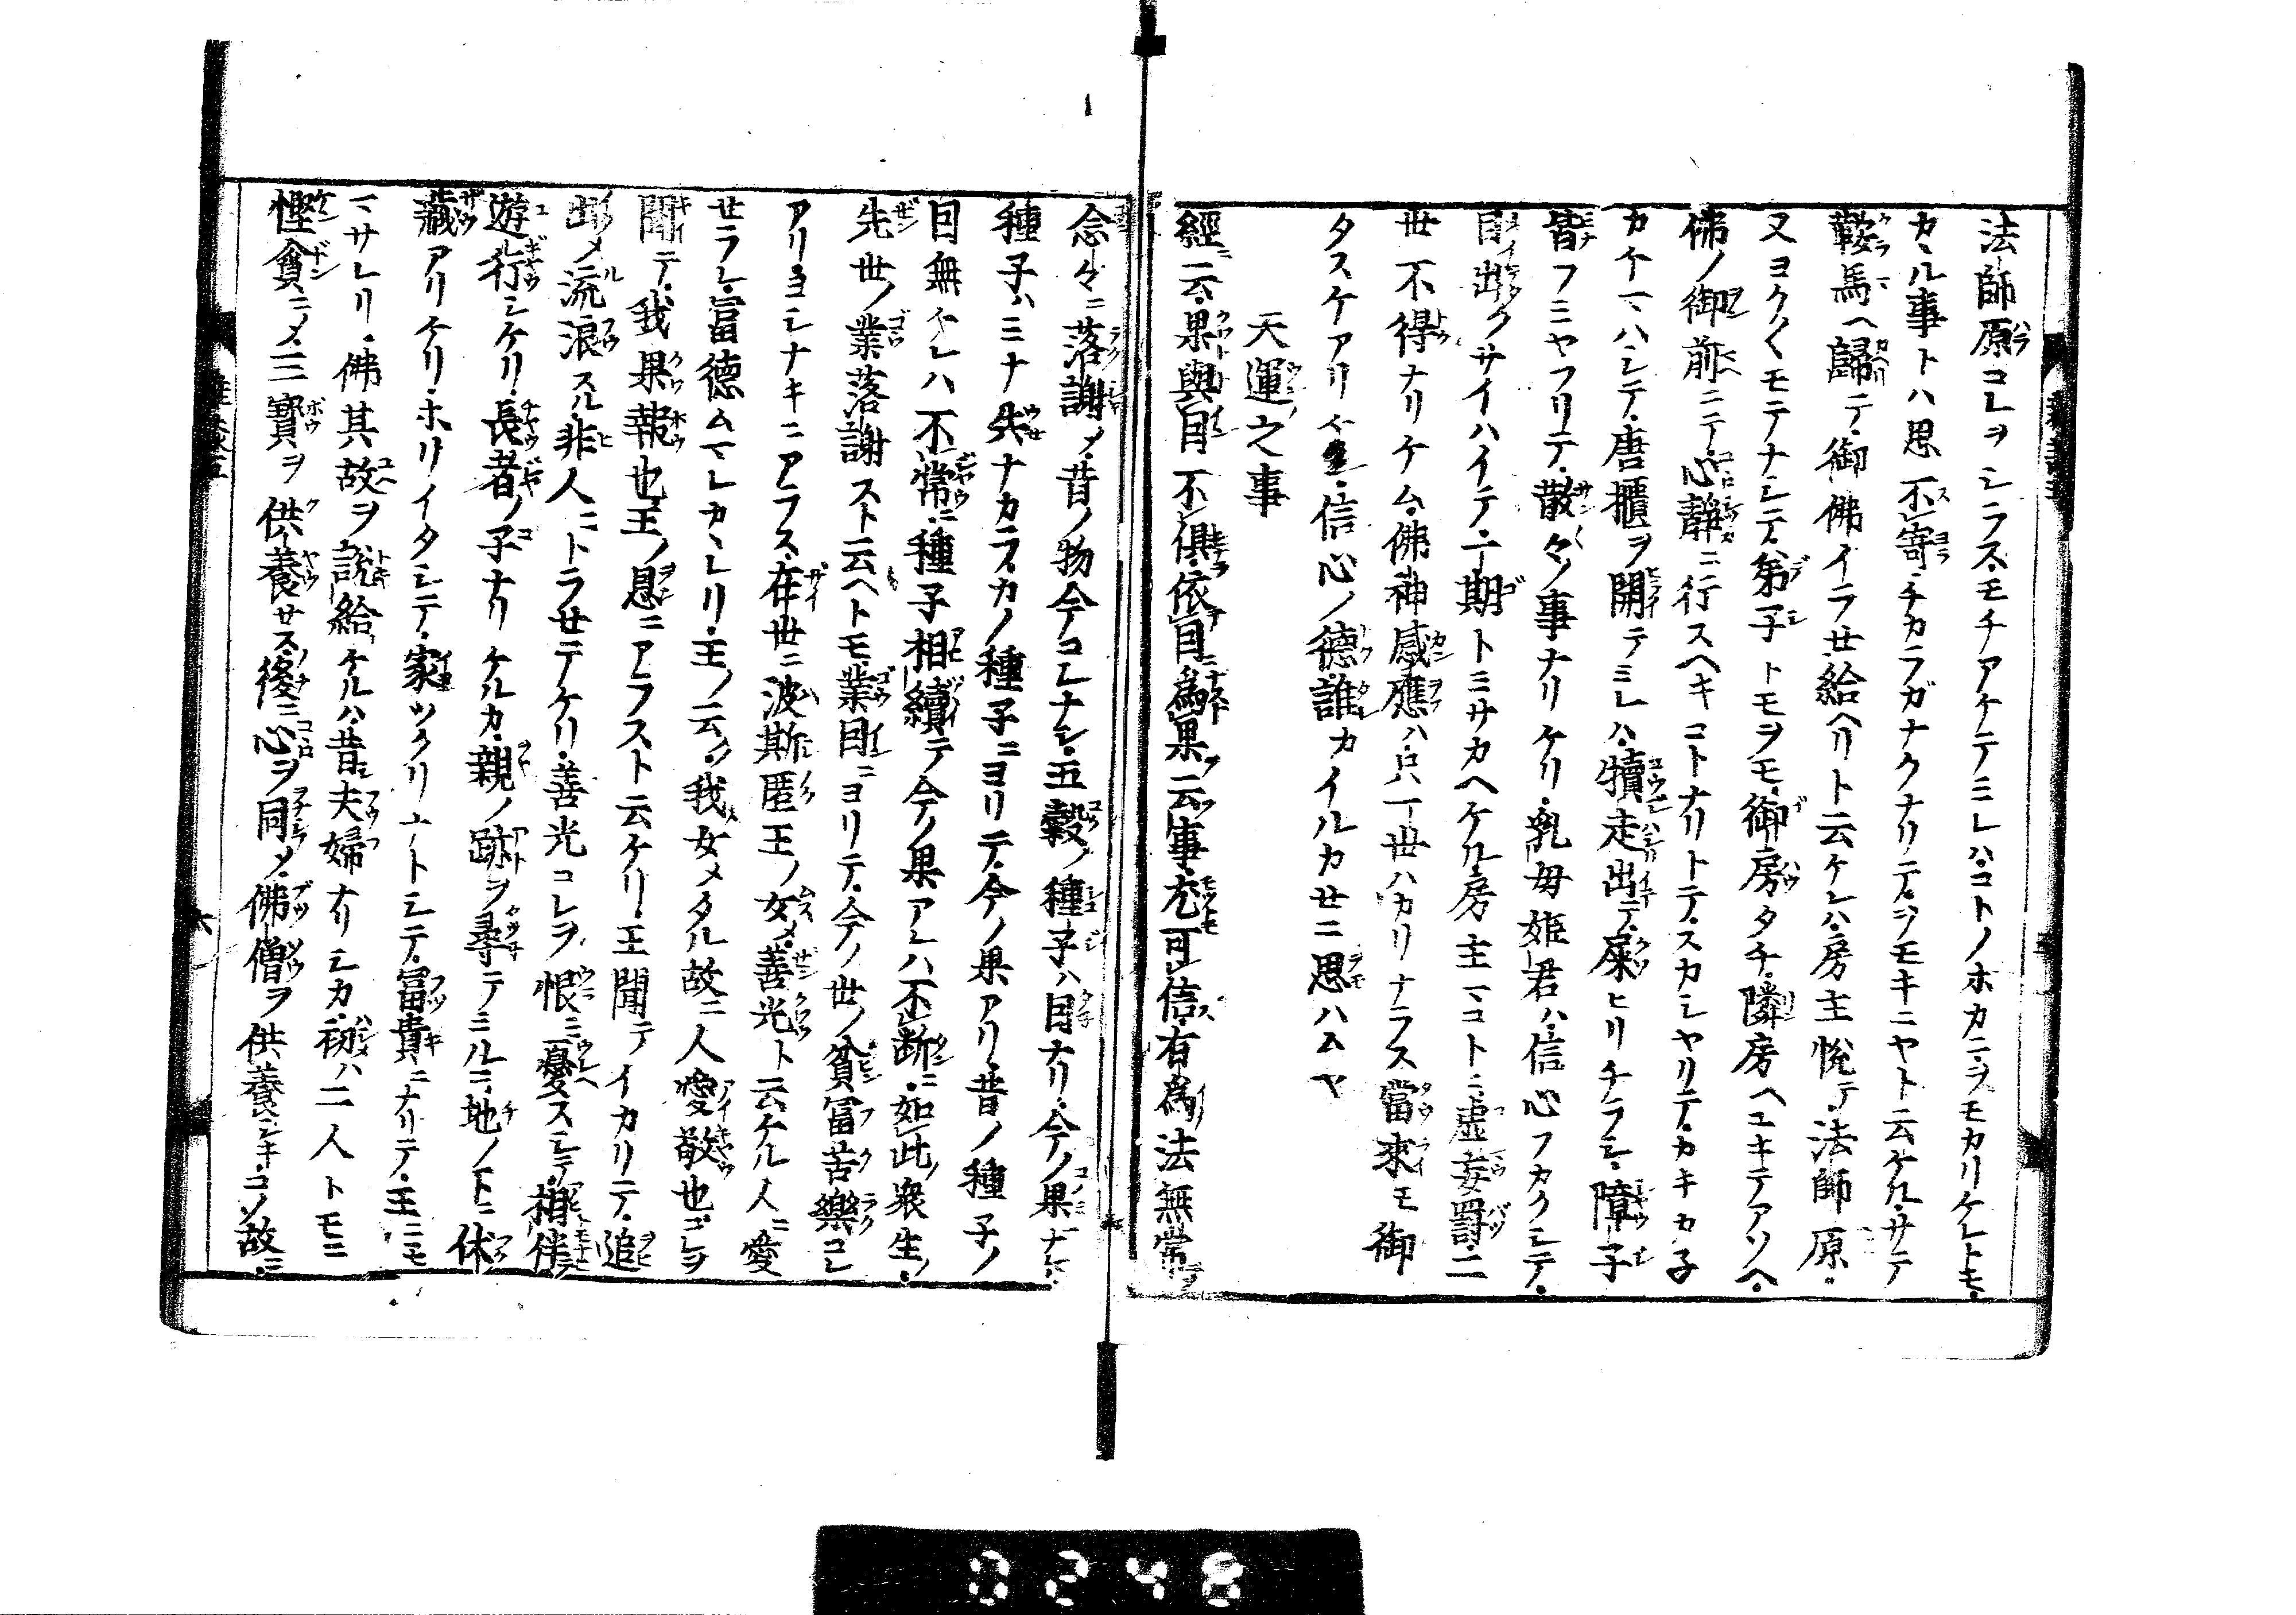 法師原コレヲシラス・モチアケテミレハ・コトノホカニ・ヲモカリケレトモ・
カヽル事トハ思不寄・チカラガナクナリテ・ヲモキニヤト云ケル・サテ
鞍馬ヘ歸テ・御佛イラせ給ヘリト云ケレハ・房主悦テ・法師原・
又ヨク〱モテナシテ・弟子トモヲモ・御房タチ・隣房ヘユキテアソヘ・
佛ノ御前ニテ・心静ニ行スヘキコトナリトテ・スカシヤリテ・カキカ子
カケマハシテ・唐櫃ヲ開テミレハ・犢走出テ・屎ヒリチラシ・障子
皆フミヤフリテ・散々ノ事ナリケリ・乳母姫君ハ・信心フカクシテ・
目出クサイハイテ・一期トミサカヘケル・房主マコトニ虚妄罰・二
世不得ナリケム・佛神感應ハ・只一世ハカリナラス當來モ御
タスケアリ・信心ノ德・誰カイルカせニ思ハムヤ
天運之事
經云・果與因不俱・依因爲果云事・尤可信・有爲法無常
念々ニ落謝メ・昔ノ物今コレナシ・五穀ノ種子ハ因ナリ・今ノ果ナレハ
種子ハミナ失ナカラ・カノ種子ニヨリテ・今ノ果アリ・昔ノ種子ノ
因無ケレハ不常・種子相續テ今ノ果アレハ不断・如此衆生ノ・
先世ノ業落謝スト云ヘトモ・業因ニヨリテ・今ノ世ノ貧冨苦樂コレ
アリヨシナキニアラス・在世ニ波斯匿王ノ女メ・善光ト云ケル・人ニ愛
せラレ・冨德ムマレカヽレリ・王ノ云ク・我女メタル故ニ人愛敬也コレヲ
聞テ・我果報也王ノ恩ニアラスト云ケリ・王聞テイカリテ・追
出メ流浪スル・非人ニトラせテケリ・善光コレヲ恨ミ憂スシテ・相伴
遊行シケリ・長者ノ子ナリケルカ・親ノ跡ヲ尋テミルニ・地ノ下ニ伏
藏アリケリ・ホリイタシテ・家ツクリナトシテ・冨貴ニナリテ・王ニモ
マサレリ・佛其故ヲ説給ケルハ・昔夫婦ナリシカ・初ハ二人トモニ
慳貪ニメ・三寶ヲ供養せス・後ニ心ヲ同メ・佛僧ヲ供養シキ・コノ故ニ・